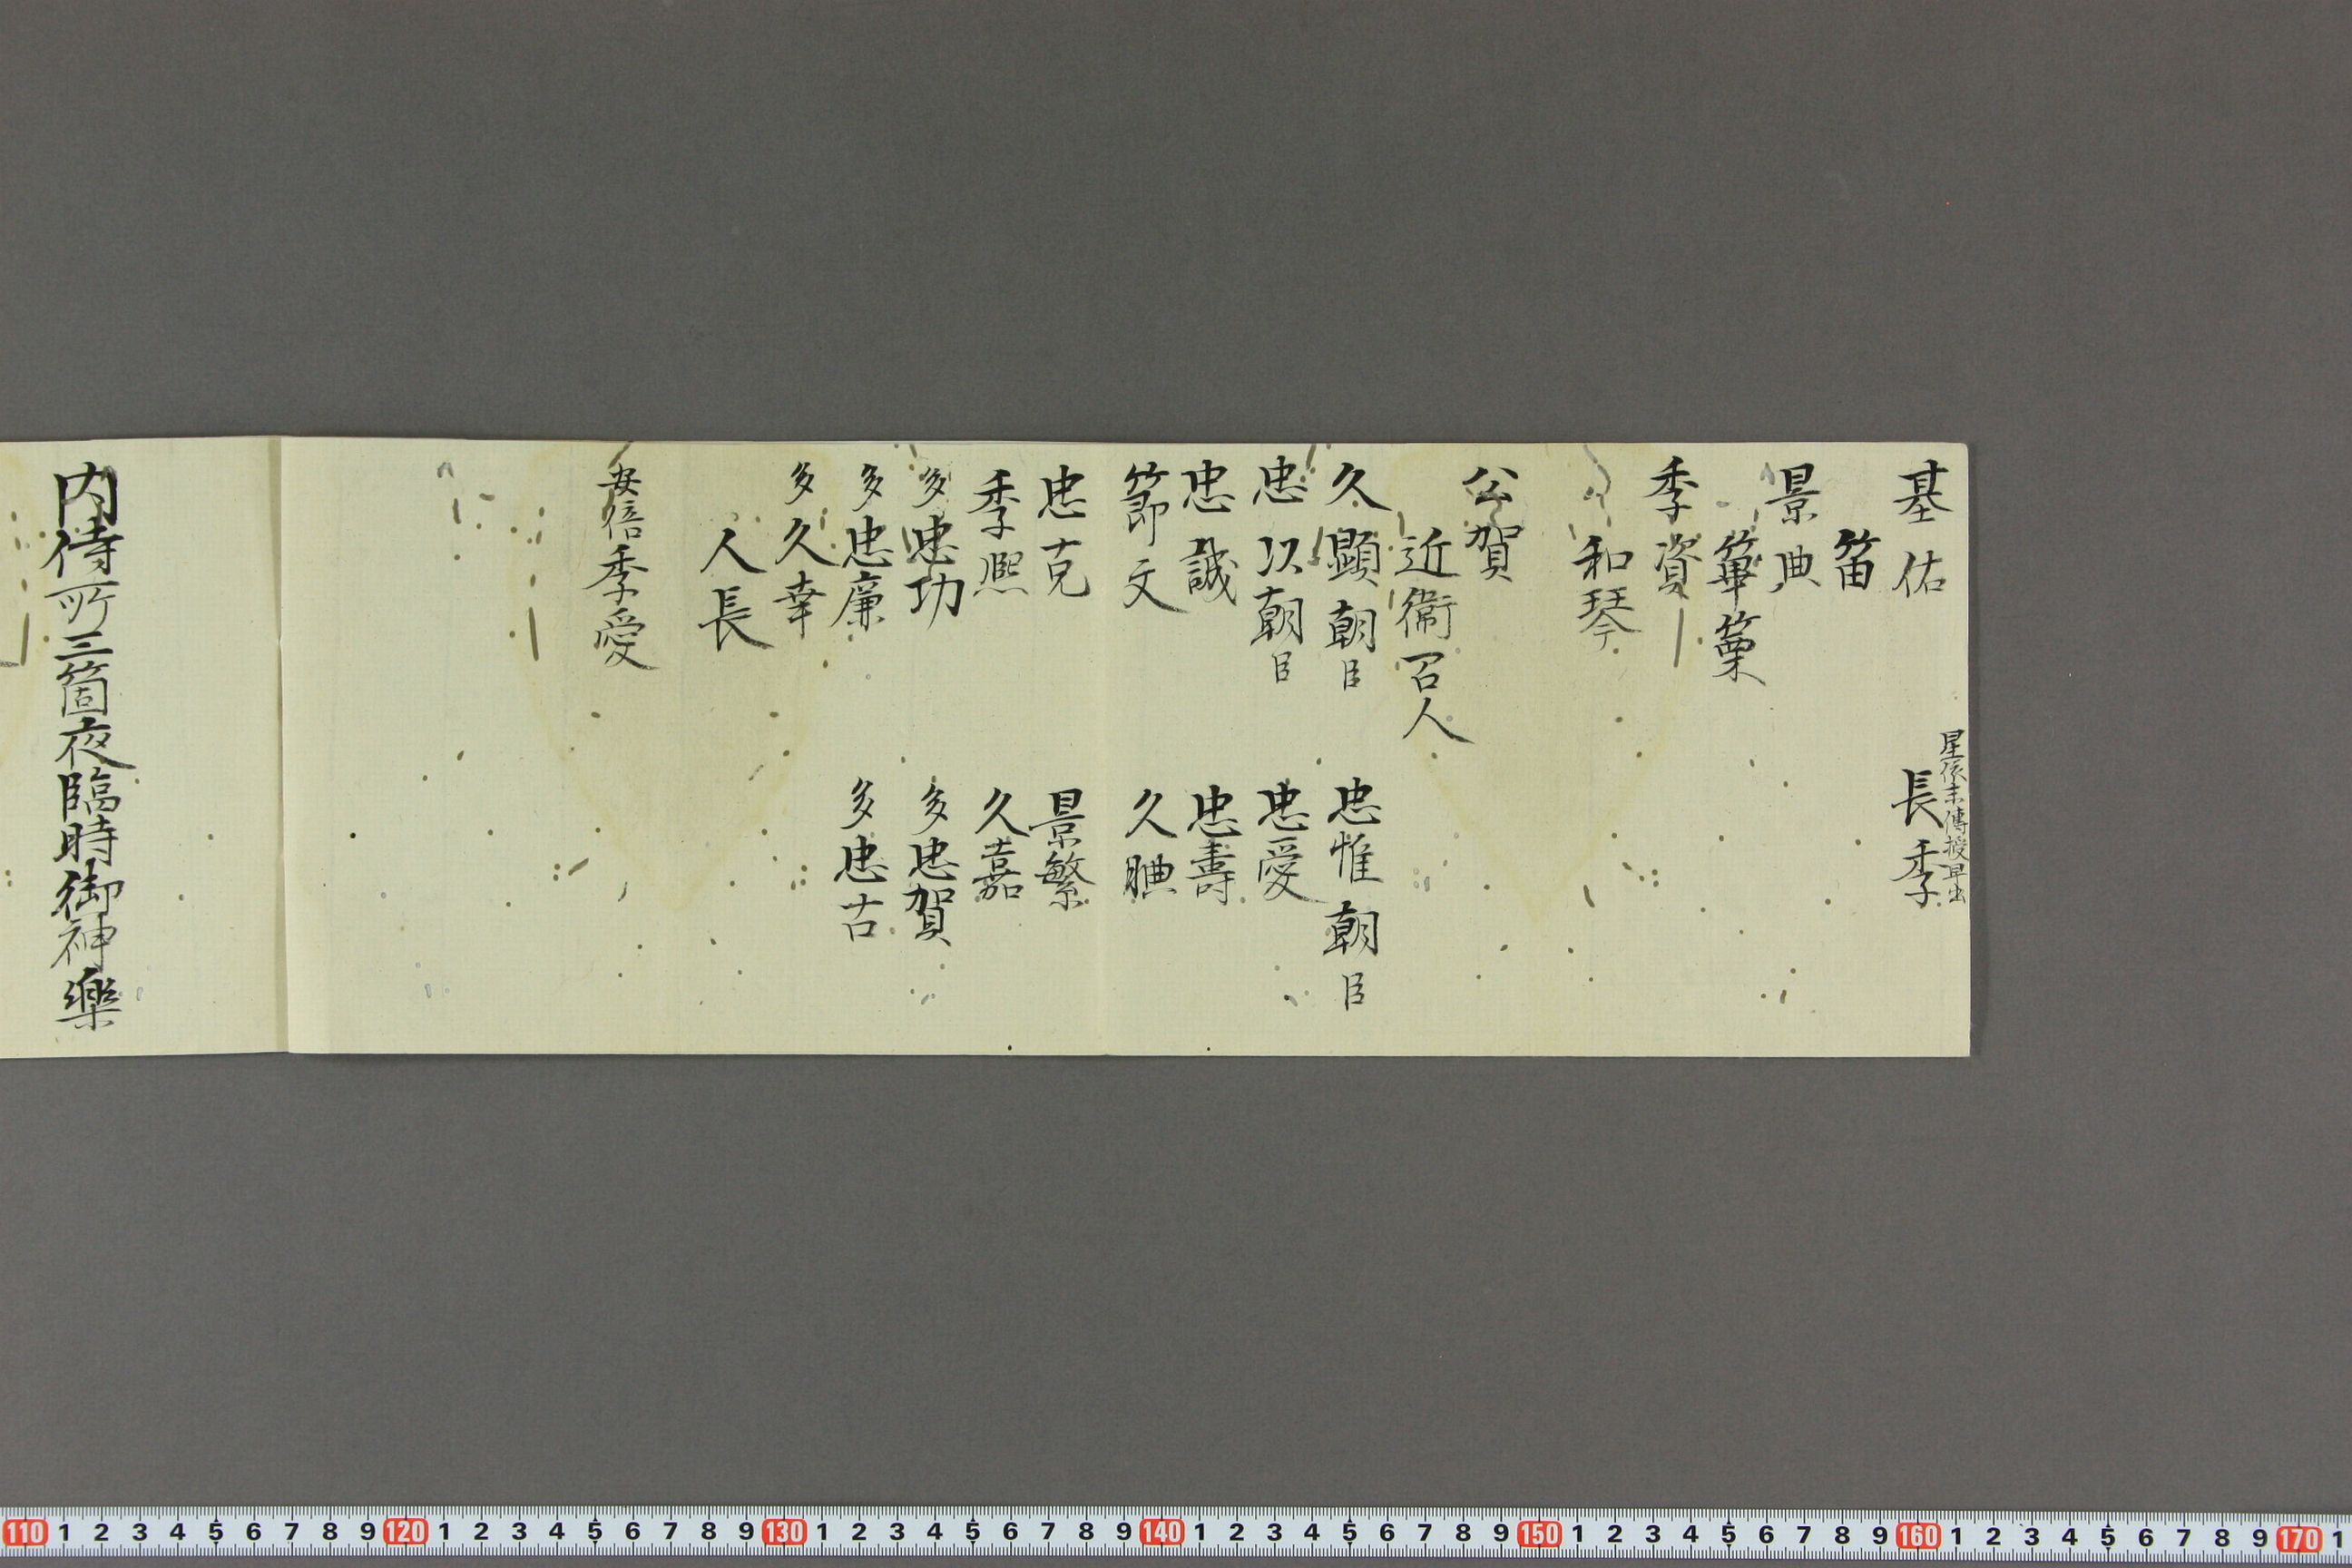 基佑　長季
星依未傳授早出
笛
景典
篳篥
季資
和琴
公賀
近衛召人
久顯朝臣　忠惟朝臣
忠以朝臣　忠愛
忠誠　忠壽
節文　久腆
忠克　景繁
季熈　久嘉
多忠功　多忠賀
多忠廉　多忠古
多久幸
人長
安倍季愛
内侍所三箇夜臨時御神樂
110 1 2 3 4 5 6 7 8 9 120 1 2 3 4 5 6 7 8 9 130 1 2 3 4 5 6 7 8 9 140 1 2 3 4 5 6 7 8 9 150 1 2 3 4 5 6 7 8 9 160 1 2 3 4 5 6 7 8 9 170 1